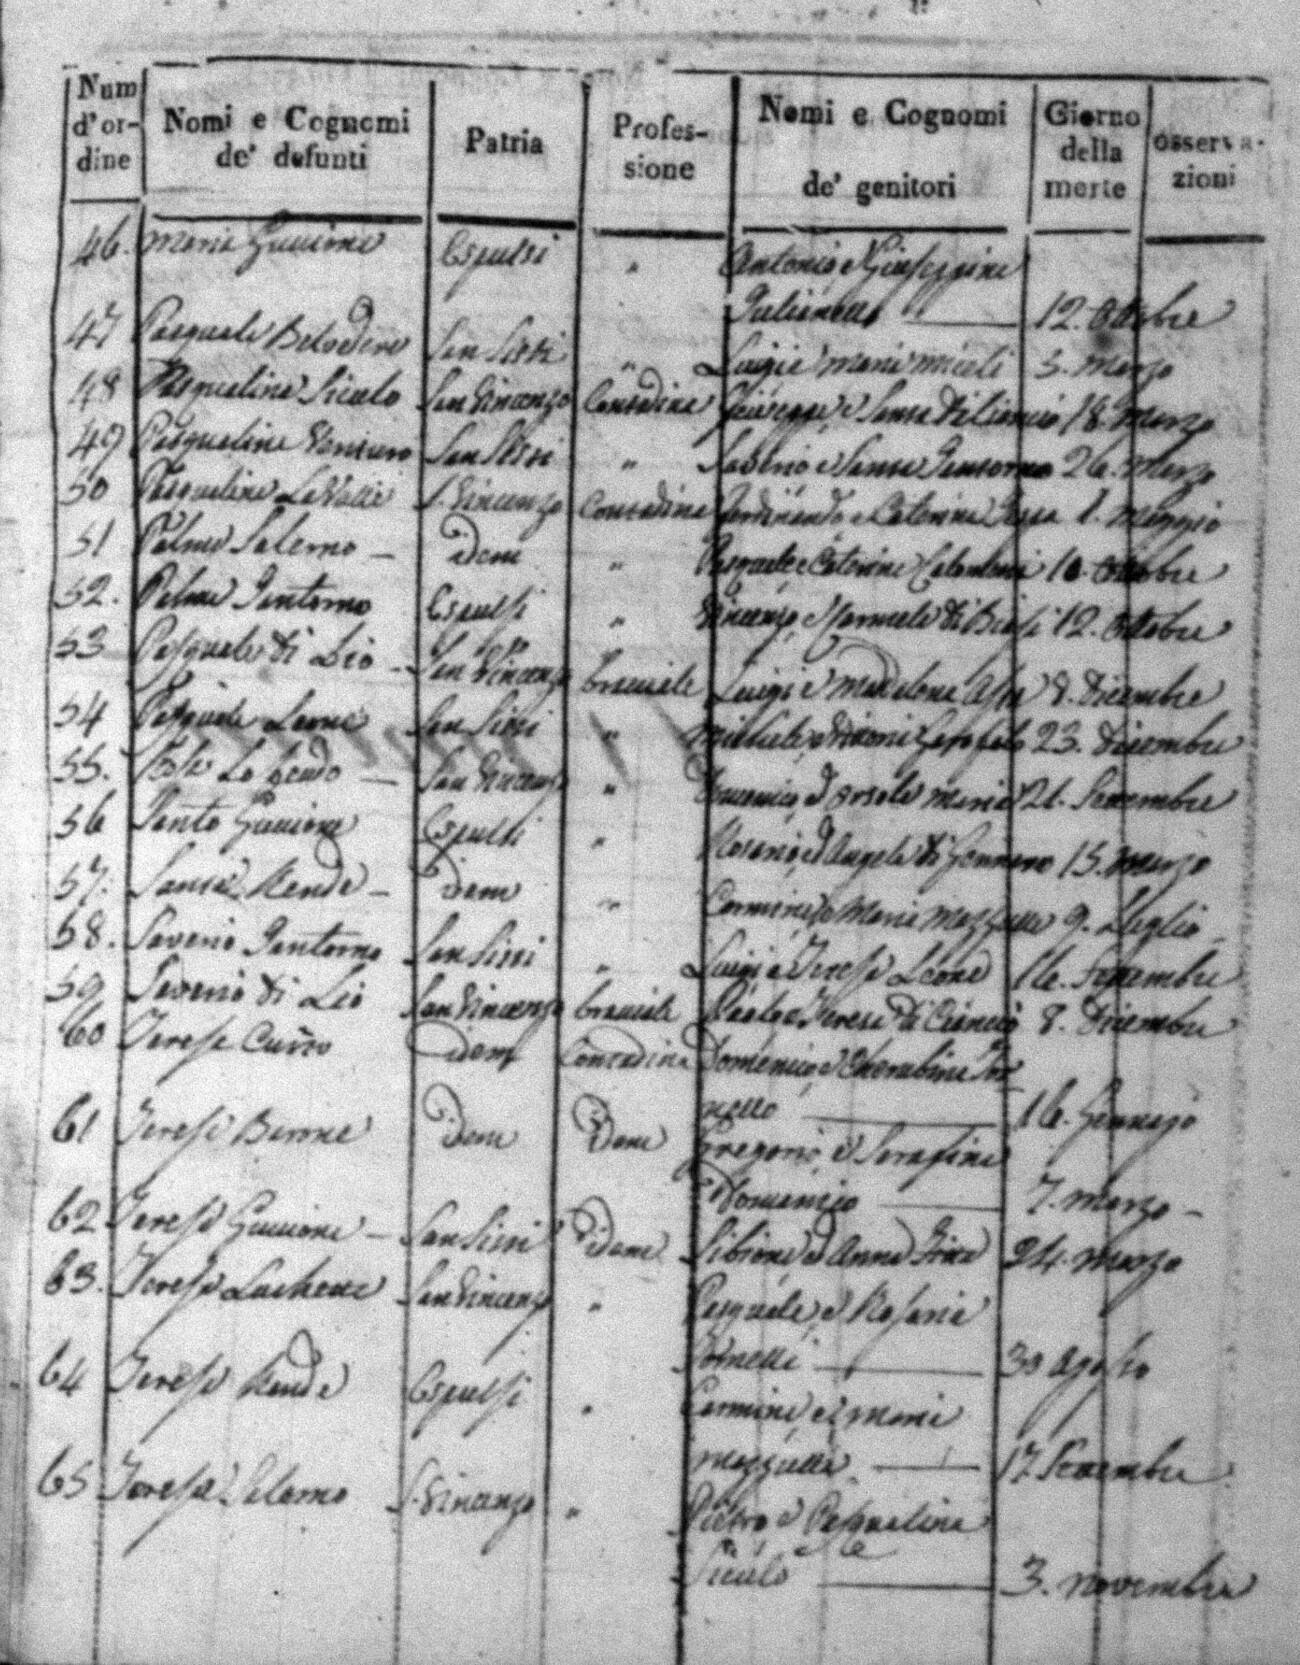 Num d'or- dine | Nomi e Cognomi de' defunti | Patria | Profes- sione | Nomi e Cognomi de' genitori | Giorno della morte | osserva- zioni
46. Maria Guccione Espulsi " Antonio e Giuseppina
12. Ottobre
47 Pasquale Belvedere San Sisti " Luigi e Maria Miceli 3. Marzo
48 Pasqualina Siculo San Vincenzo Contadina Giuseppe e Santa di Cianciò 18. Marzo
49 Pasqualina San Sisti " Saverio e Santa Santorno 26. Marzo
50 Pasqualina La Valle S. Vincenzo Contadina Ferdinando e Caterina 1. Maggio
51 Palma Salerno — idem " Pasquale e Caterina 10. Ottobre
52. Palma Santorno Espulsi " Vincenzo e Carmela di Biasi 12. Ottobre
53 Pasquale di Lio — San Vincenzo braciale Luigi e Madalena 8. Dicembre
54 Pasquale San Sisti " Michele e Garofalo 23. Dicembre
55. Lo Gendo — San Vincenzo " Domenico ed Orsola Maria 21. Settembre
56 Santo Guccione Espulsi " Rosario ed Angela di Gennaro 15. Marzo
57. Santa Rende — idem " Carmine e Maria Mazzulla 9. Luglio
58. Saverio Santorno San Sisti " Luigi e Teresa Leone 16. Settembre
59 Saverio di Lio San Vincenzo braciale Paolo e Teresa di Cianciò 8. Dicembre
60 Teresa Curto idem Contadina Domenico e Cherubina Tor
nello — 16. Gennajo
61 Teresa Barone idem idem Gregorio e Serafina
Domanico — 7. Marzo —
62 Teresa Guccione — San Sisti idem Sibione ed Anna 24. Marzo
63. Teresa San Vincenzo " Pasquale e Rosaria
Tornelli — 30 Agosto
64 Teresa Rende Espulsi " Carmine e Maria
Mazzulla — 17 Settembre
65 Teresa Salerno S. Vincenzo " Pietro e Pasqualina
Siculo — 3. Novembre